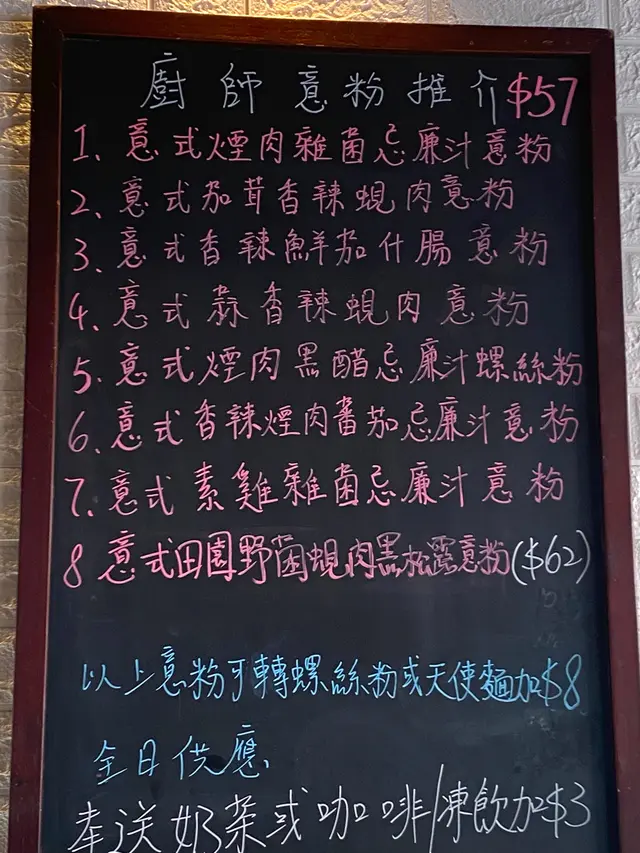 廚師意粉推介$57
1. 意式煙肉雜菌忌廉汁意粉
2. 意式茄茸香辣蜆肉意粉
3. 意式香辣鮮茄什腸意粉
4. 意式蒜香辣蜆肉意粉
5. 意式煙肉黑醋忌廉汁螺絲粉
6. 意式香辣煙肉蕃茄忌廉汁意粉
7. 意式素雞雜菌忌廉汁意粉
8 意式田園野菌蜆肉黑松露意粉($62)
以上意粉可轉螺絲粉或天使麵加$8
全日供應
奉送奶茶或咖啡/凍飲加$3